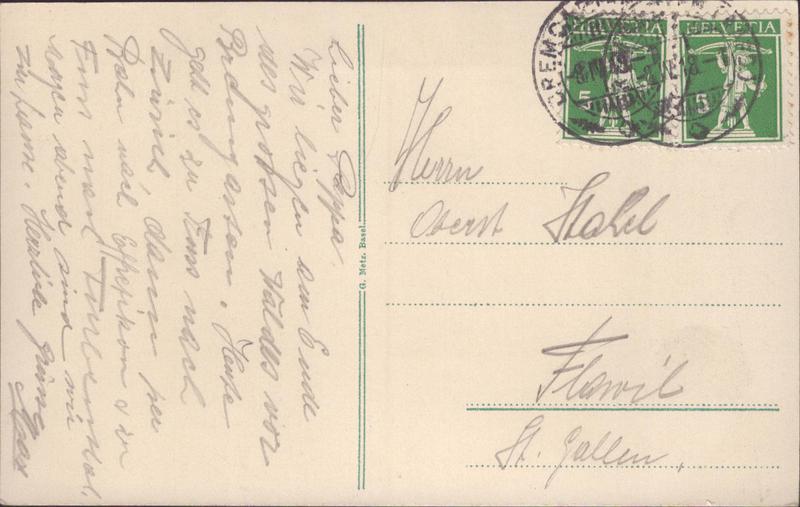 Lieber Pappa.
Wir liegen am Ende
des grossen Waldes vor
Bremgarten. Heute
geht es zu Fuss nach
Zürich, dann per
Bahn nach Effretikon & zu
Fuss nach
abend sind wir
zu Hause. Herzliche Grüsse
Max
G. Metz, Basel.
HELVETIA
5
HELVETIA
5
BREMGARTEN
Herrn
Oberst Stahel
Flawil
St. Gallen,